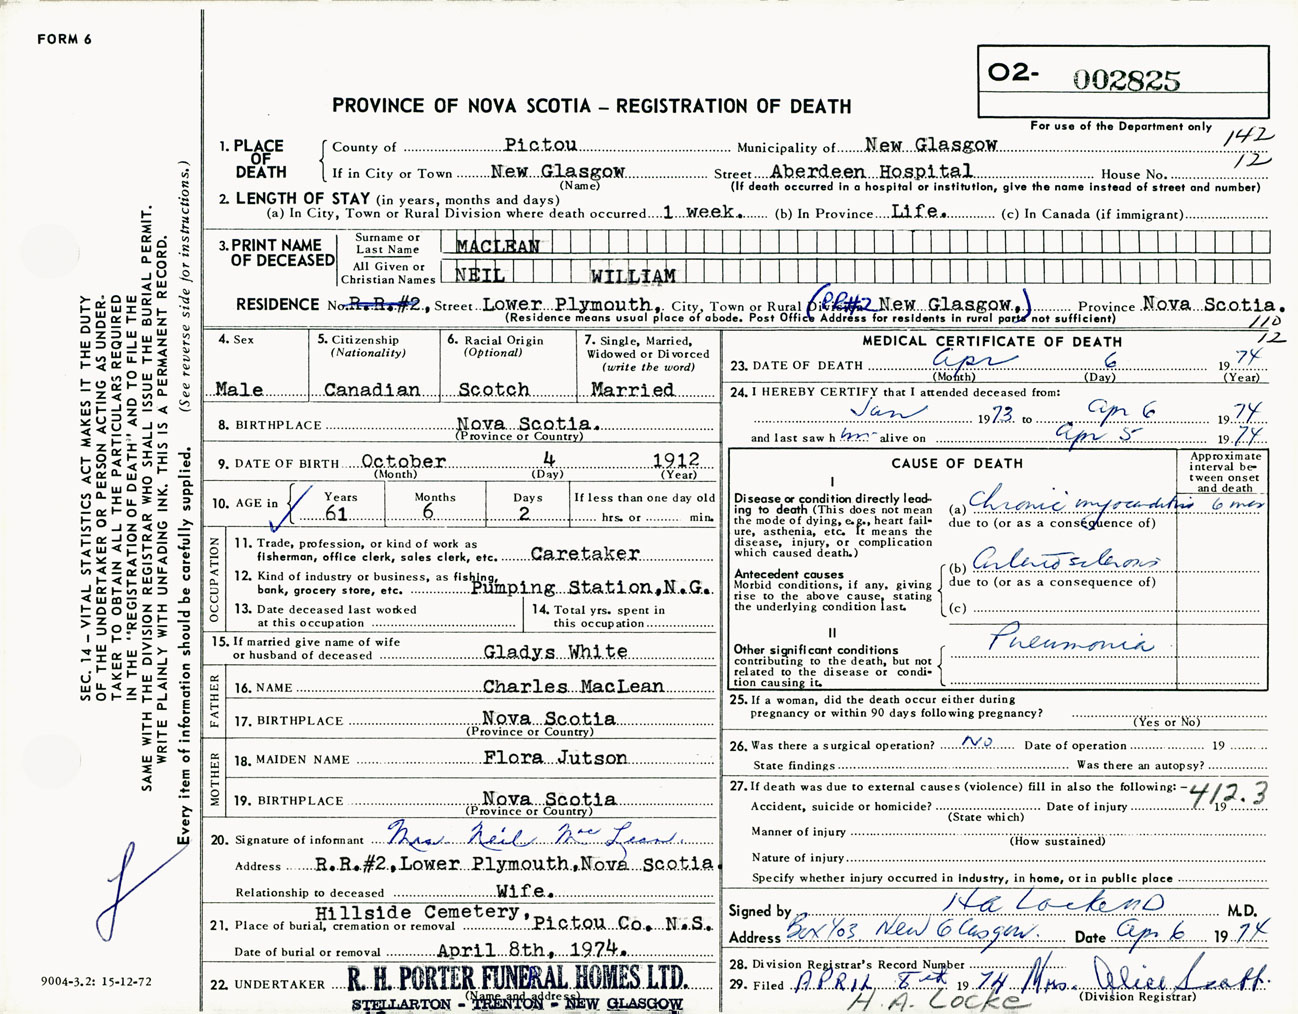 FORM 6
O2- 002825
PROVINCE OF NOVA SCOTIA – REGISTRATION OF DEATH
For use of the Department only
142
12
1. PLACE OF DEATH
County of Pictou Municipality of New Glasgow
If in City or Town New Glasgow Street Aberdeen Hospital House No.
(Name) (If death occurred in a hospital or institution, give the name instead of street and number)
2. LENGTH OF STAY (in years, months and days)
(a) In City, Town or Rural Division where death occurred 1 week. (b) In Province Life. (c) In Canada (if immigrant)
3. PRINT NAME OF DECEASED
Surname or Last Name MACLEAN
All Given or Christian Names NEIL WILLIAM
RESIDENCE No. R.R.#2, Street Lower Plymouth, City, Town or Rural Division (RR#2 New Glasgow,) Province Nova Scotia.
(Residence means usual place of abode. Post Office Address for residents in rural parts not sufficient)
110
12
4. Sex
Male
5. Citizenship
(Nationality)
Canadian
6. Racial Origin
(Optional)
Scotch
7. Single, Married, Widowed or Divorced
(write the word)
Married
8. BIRTHPLACE Nova Scotia.
(Province or Country)
9. DATE OF BIRTH October 4 1912
(Month) (Day) (Year)
10. AGE in Years Months Days If less than one day old
61 6 2 hrs. or min.
OCCUPATION
11. Trade, profession, or kind of work as fisherman, office clerk, sales clerk, etc. Caretaker
12. Kind of industry or business, as fishing, bank, grocery store, etc. Pumping Station,N.G.
13. Date deceased last worked at this occupation
14. Total yrs. spent in this occupation
15. If married give name of wife or husband of deceased Gladys White
FATHER
16. NAME Charles MacLean
17. BIRTHPLACE Nova Scotia
(Province or Country)
MOTHER
18. MAIDEN NAME Flora Jutson
19. BIRTHPLACE Nova Scotia
(Province or Country)
20. Signature of informant Mrs Neil MacLean
Address R.R.#2,Lower Plymouth,Nova Scotia.
Relationship to deceased Wife.
21. Place of burial, cremation or removal Hillside Cemetery, Pictou Co. N.S.
Date of burial or removal April 8th, 1974.
22. UNDERTAKER R. H. PORTER FUNERAL HOMES LTD.
(Name and address)
STELLARTON - TRENTON - NEW GLASGOW
MEDICAL CERTIFICATE OF DEATH
23. DATE OF DEATH Apr 6 1974
(Month) (Day) (Year)
24. I HEREBY CERTIFY that I attended deceased from:
Jan 1973 to Apr 6 1974
and last saw him alive on Apr 5 1974
CAUSE OF DEATH
Approximate interval between onset and death
I
Disease or condition directly leading to death (This does not mean the mode of dying, e.g., heart failure, asthenia, etc. It means the disease, injury, or complication which caused death.)
(a) Chronic myocarditis 6 mos
due to (or as a consequence of)
Antecedent causes
Morbid conditions, if any, giving rise to the above cause, stating the underlying condition last.
(b) Arteriosclerosis
due to (or as a consequence of)
(c)
II
Other significant conditions contributing to the death, but not related to the disease or condition causing it.
Pneumonia
25. If a woman, did the death occur either during pregnancy or within 90 days following pregnancy?
(Yes or No)
26. Was there a surgical operation? No Date of operation 19
State findings Was there an autopsy?
27. If death was due to external causes (violence) fill in also the following: -412.3
Accident, suicide or homicide? Date of injury 19
(State which)
Manner of injury
(How sustained)
Nature of injury
Specify whether injury occurred in industry, in home, or in public place
Signed by HA Locke MD M.D.
Address Box 403 New Glasgow. Date Apr 6 1974
28. Division Registrar's Record Number
29. Filed APRIL 8th 1974 Mrs. Alice Scott.
(Division Registrar)
H. A. LOCKE
SEC. 14 – VITAL STATISTICS ACT MAKES IT THE DUTY
OF THE UNDERTAKER OR PERSON ACTING AS UNDER-
TAKER TO OBTAIN ALL THE PARTICULARS REQUIRED
IN THE "REGISTRATION OF DEATH" AND TO FILE THE
SAME WITH THE DIVISION REGISTRAR WHO SHALL ISSUE THE BURIAL PERMIT.
WRITE PLAINLY WITH UNFADING INK. THIS IS A PERMANENT RECORD.
Every item of information should be carefully supplied. (See reverse side for instructions.)
9004-3.2: 15-12-72